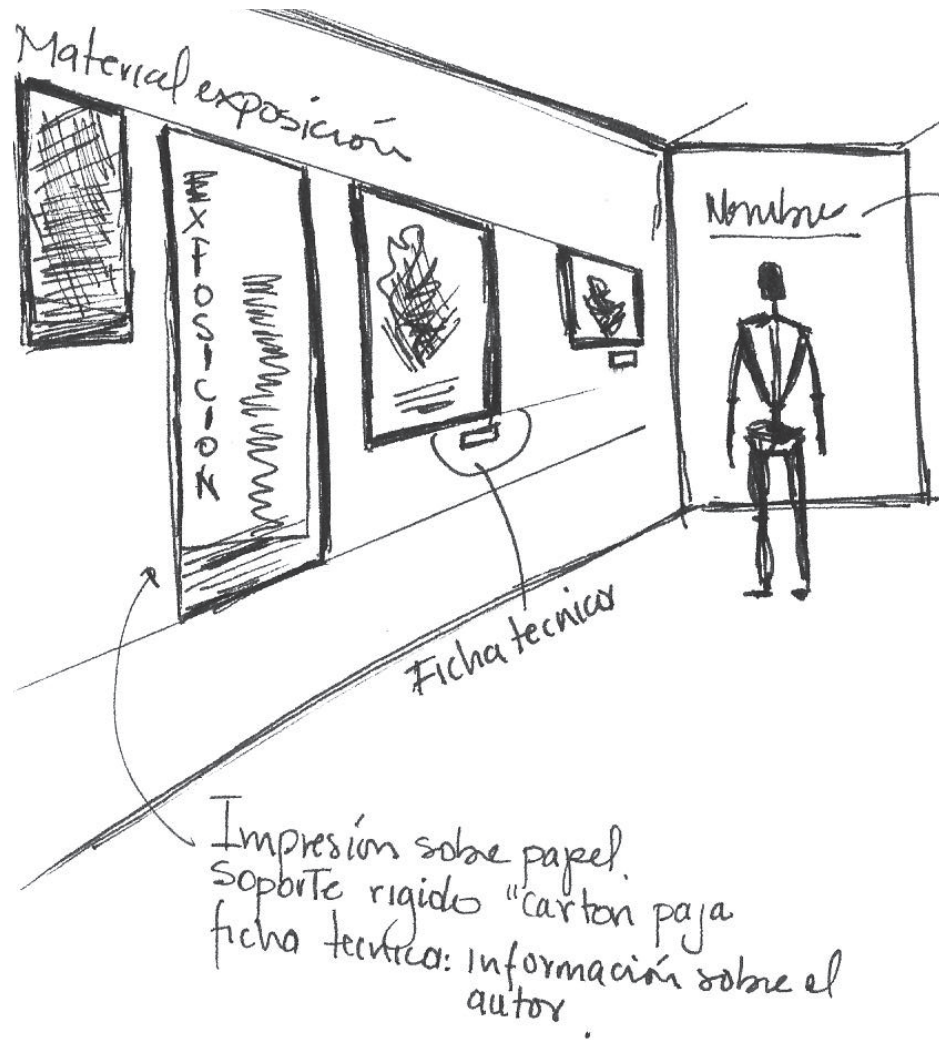 Material exposición
EXPOSICION
Nombre
Ficha tecnica
Impresión sobre papel.
soporte rigido "carton paja
ficha tecnica: información sobre el
autor.